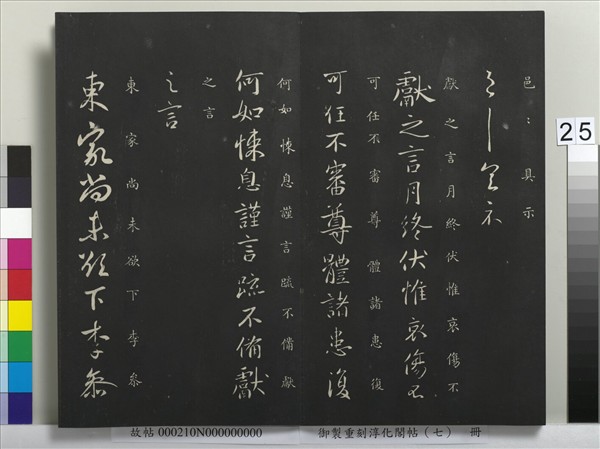 邑〻具示
邑〻具示
獻之言月終伏惟哀傷不
獻之言月終伏惟哀傷不
可任不審尊體諸患復
可任不審尊體諸患復
何如悚息謹言疏不備獻
何如悚息謹言疏不備獻
之言
之言
東家尚未欲下李參
東家尚未欲下李參
25
故帖 000210N000000000
御製重刻淳化閣帖（七） 冊